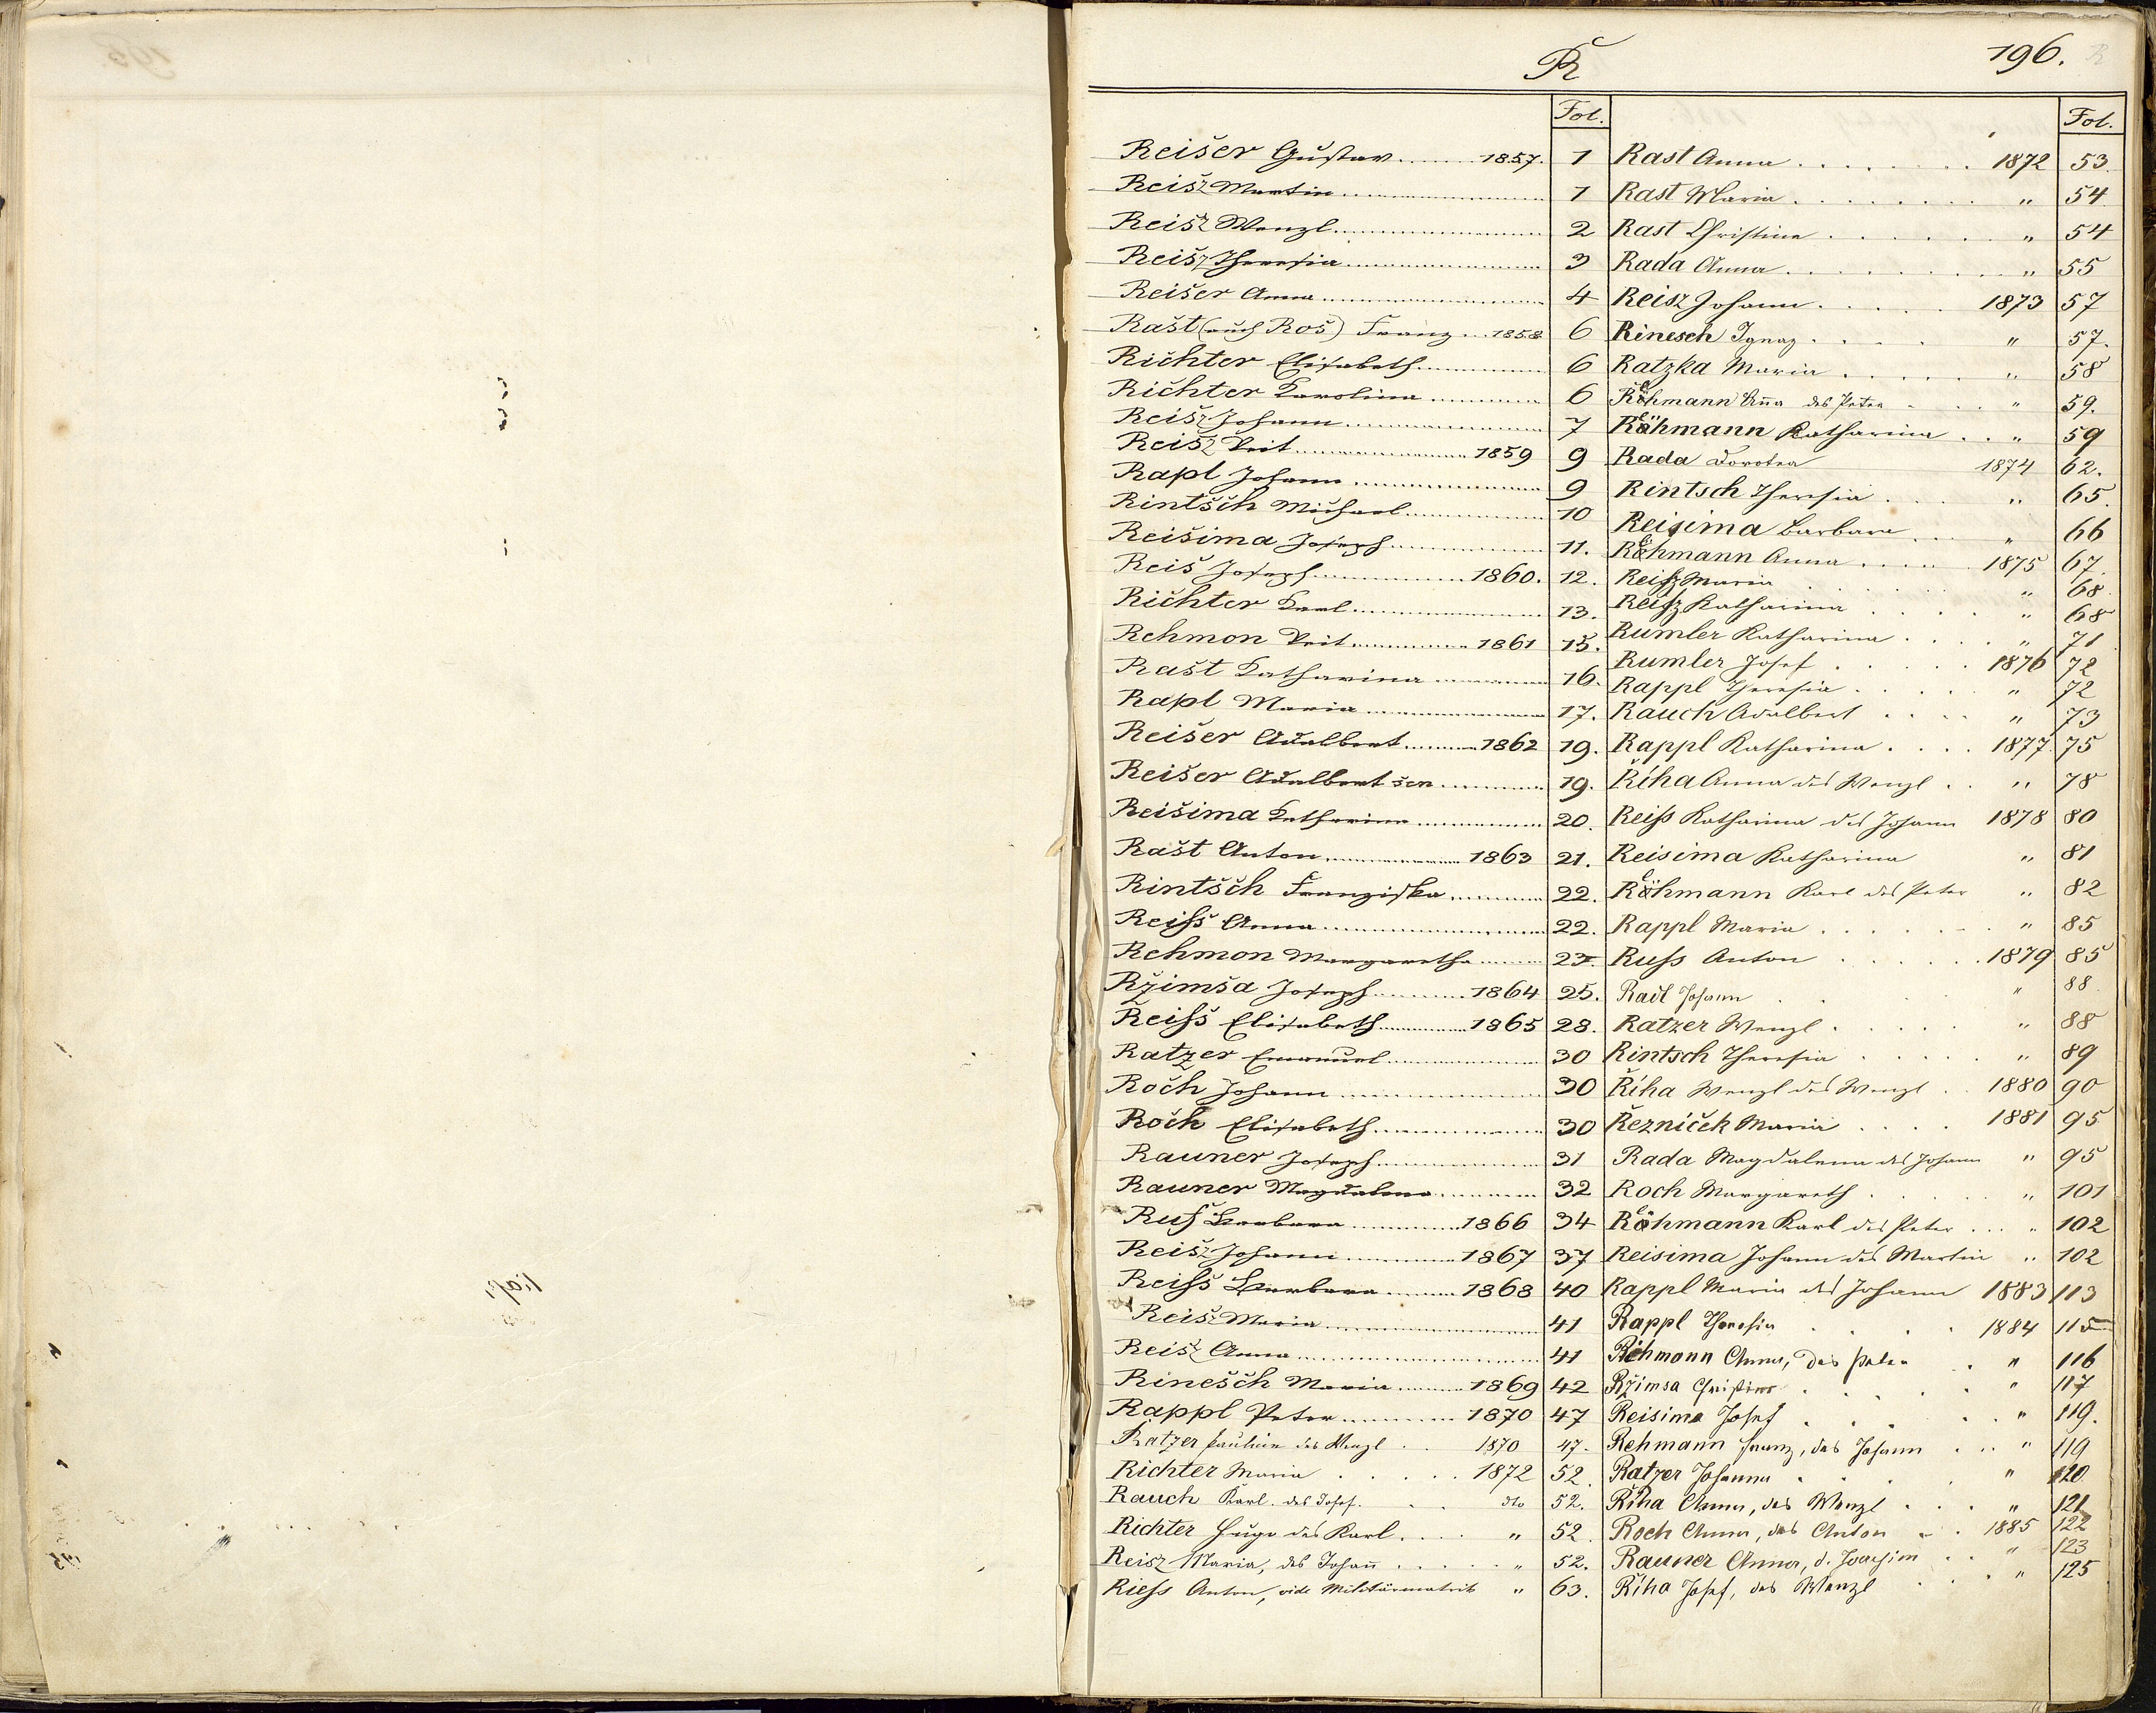 196.
R
Fol.
Reišer Gustav 1857. 1
Reisz Martin 1
Reisz Wenzl 2
Reisz Theresia 3
Reišer Anna 4
Rašt (auch Roš) Franz 1858 6
Richter Elisabeth 6
Richter Karolina 6
Reisz Johann 7
Reisz Veit 1859 9
Rapl Johann 9
Rintšch Michael 10
Reišima Joseph 11.
Reiš Joseph 1860. 12.
Richter Karl 13.
Rehmon Veit 1861 15.
Rašt Katharina 16.
Rapl Maria 17.
Reišer Adalbert 1862 19.
Reišer Adalbert sen 19.
Reišima Katharina 20.
Rašt Anton 1863 21.
Rintšch Franziska 22.
Reiss Anna 22.
Rehmon Margaretha 23.
Rzimša Joseph 1864 25.
Reiss Elisabeth 1865 28.
Ratzer Emanuel 30
Roch Johann 30
Roch Elisabeth 30
Rauner Joseph 31
Rauner Magdalena 32
Ruß Barbara 1866 34
Reisz Johann 1867 37
Reiss Barbara 1868 40
Reisz Maria 41
Reisz Anna 41
Rinešch Maria 1869 42
Rappl Peter 1870 47
Ratzer Paulina des Wenzl 1870 47.
Richter Maria 1872 52.
Rauch Karl des Josef. dto 52.
Richter Hugo des Karl " 52
Reisz Maria, des Johañ " 52.
Riess Anton, vide Militärmatrik " 63.
Fol.
Rast Anna 1872 53.
Rast Maria " 54
Rast Christine " 54
Rada Anna " 55
Reisz Johann 1873 57
Rinesch Ignaz " 57.
Ratzka Maria " 58
Röhmann Aña des Peter " 59.
Röhmann Katharina " 59
Rada Dorotea 1874 62.
Rintsch Theresia " 65.
Reisima Barbara " 66
Röhmann Anna 1875 67.
Reisz Maria " 68.
Reisz Katharina " 68
Rumler Katharina " 71
Rumler Josef 1876 72
Rappl Theresia " 72
Rauch Adalbert " 73
Rappl Katharina 1877 75
Řiha Anna des Wenzl " 78
Reiss Katharina des Johann 1878 80
Reisima Katharina " 81
Röhmann Karl des Peter " 82
Rappl Maria " 85
Russ Anton 1879 85
Radl Johann " 88
Ratzer Wenzl " 88
Rintsch Theresia " 89
Řiha Wenzl des Wenzl 1880 90
Řezníček Maria 1881 95
Rada Magdalena des Johann " 95
Roch Margareth " 101
Röhmann Karl des Peter " 102
Reisima Johann des Martin " 102
Rappl Maria des Johann 1883 113
Rappl Theresia 1884 115
Rehmann Anna, des Peter " 116
Rzimsa Christine " 117
Reisima Josef " 119.
Rehmann Franz, des Johann " 119
Ratzer Johanna " 120
Řiha Anna, des Wenzl " 121
Roch Anna, des Anton 1885 122
Rauner Anna, d. Joachim " 123
Řiha Josef, des Wenzl " 125